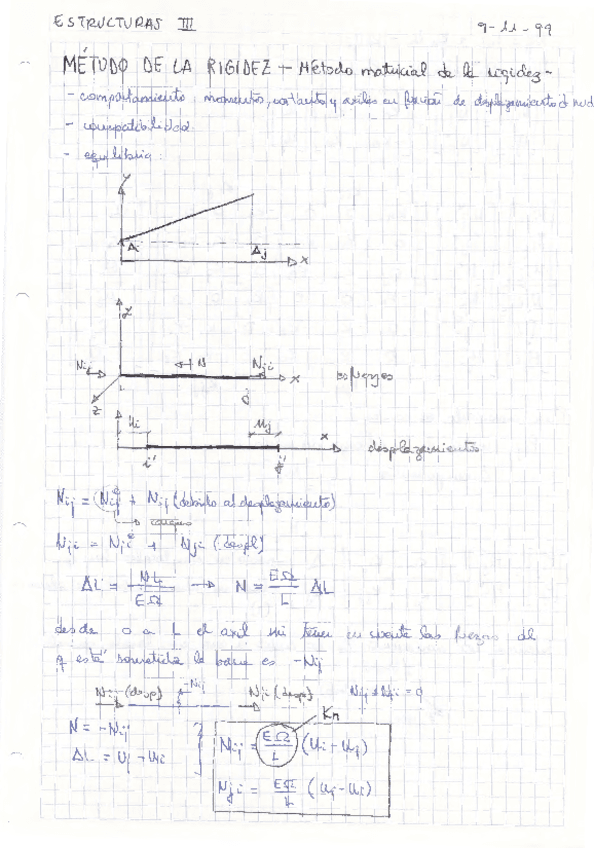 ESTRUCTURAS III 9-11-99
MÉTODO DE LA RIGIDEZ - Método matricial de la rigidez -
- comportamiento: momentos, cortantes y axiles en función de desplazamientos d nud
- compatibilidad
- equilibrio:
y
Δi Δj x
y
Nij N Nji x esfuerzos
z i j
ui uj x desplazamientos
i' j'
Nij = Nij^e + Nij (debido al desplazamiento)
cargas
Nji = Nji^e + Nji (despl)
ΔL = NL / EΩ → N = EΩ / L ΔL
desde 0 a L el axil sin tener en cuenta las fuerzas al
q está sometida la barra es -Nij
Nij (desp) -Nij Nji (desp) Nij + Nji = 0
Kn
N = -Nij
ΔL = uj - ui
Nij = EΩ / L (ui - uj)
Nji = EΩ / L (uj - ui)